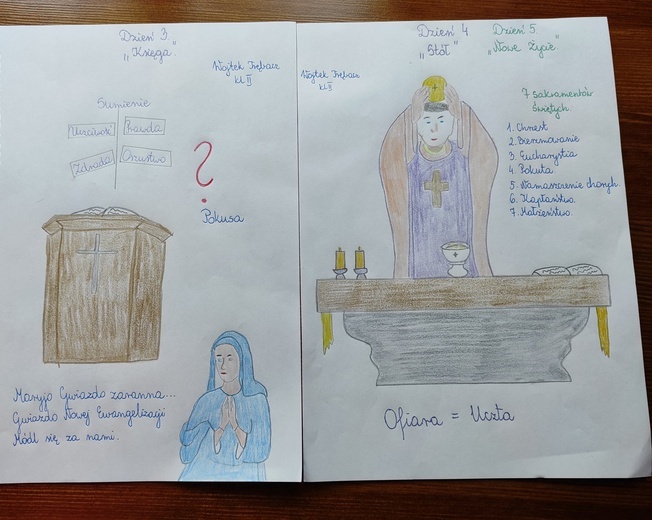 Dzień 3.
"Księga."
Wojtek Trębacz
kl II
Sumienie
Uczciwość
Prawda
Zdrada
Oszustwo
?
Pokusa
Maryjo Gwiazdo zaranna...
Gwiazdo Nowej Ewangelizacji
Módl się za nami.
Dzień 4
"Stół"
Dzień 5.
"Nowe Życie."
Wojtek Trębacz
kl II
7 sakramentów
Świętych
1. Chrzest
2. Bierzmowanie
3. Eucharystia
4. Pokuta
5. Namaszczenie chorych.
6. Kapłaństwo.
7. Małżeństwo.
Ofiara = Uczta